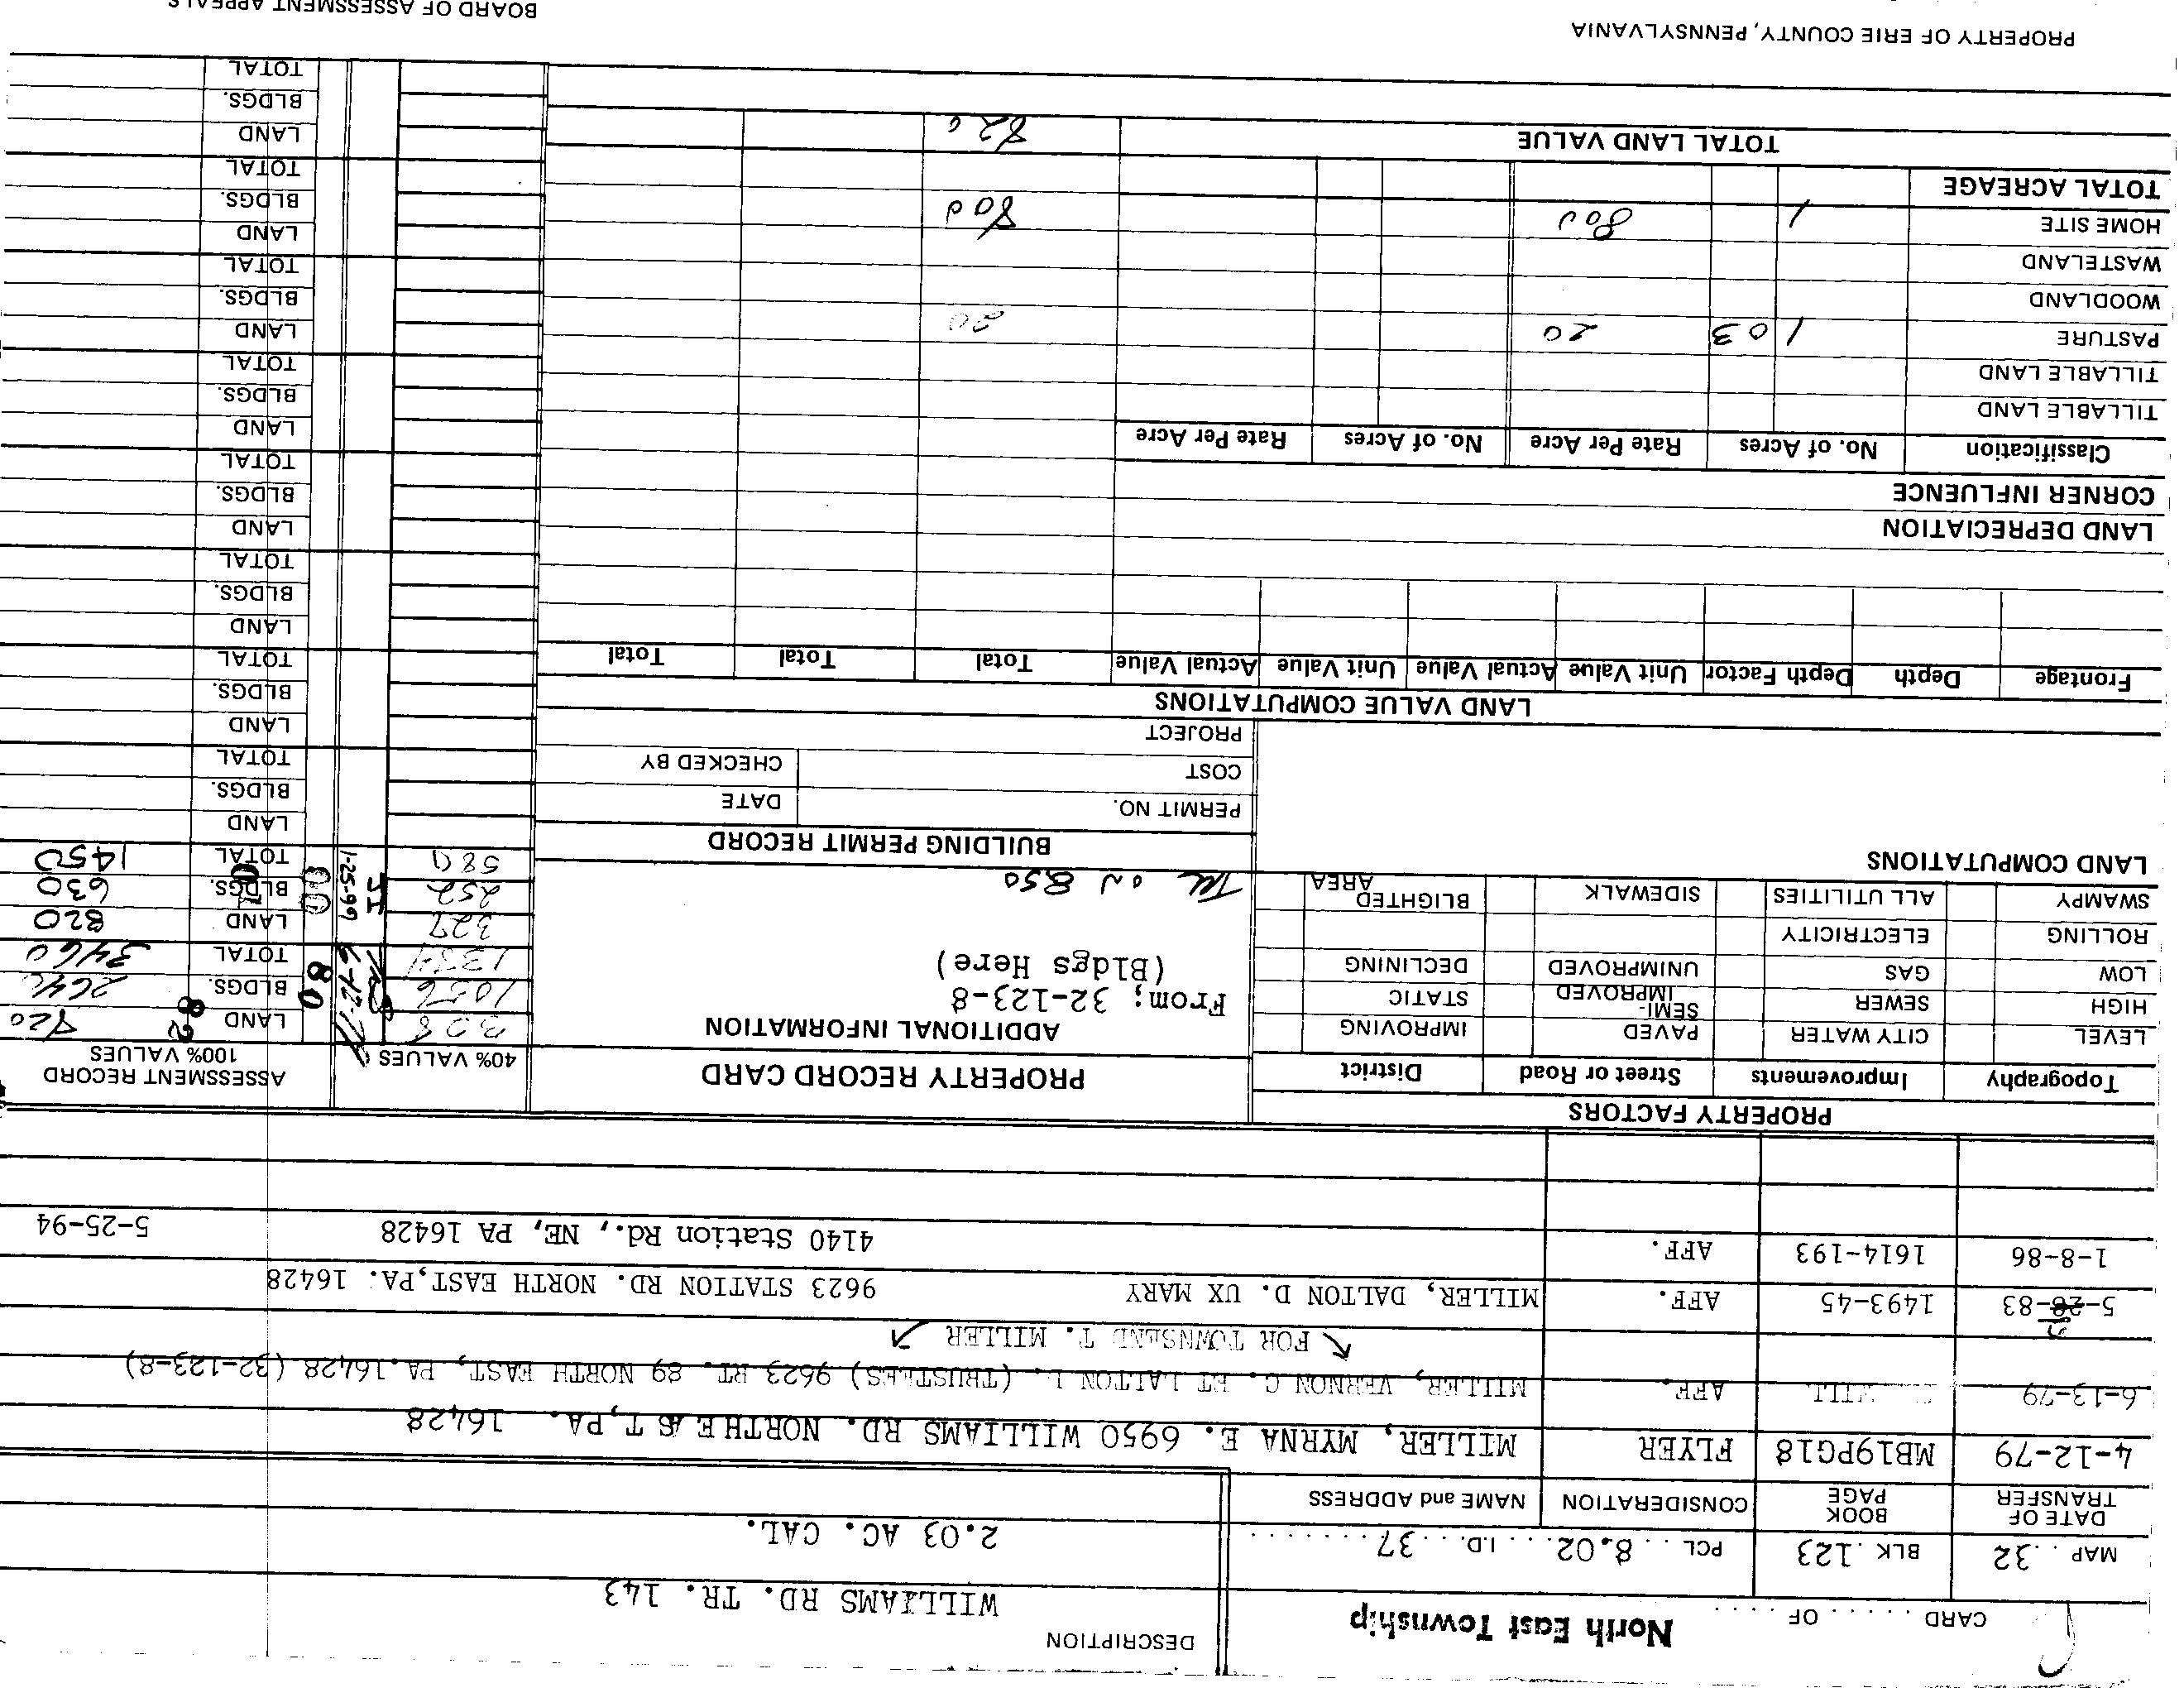 CARD ...... OF ....
North East Township
DESCRIPTION
WILLIAMS RD. TR. 143
MAP ..32 BLK .123 PCL ...8.02....I.D....37........
2.03 AC. CAL.
DATE OF TRANSFER BOOK PAGE CONSIDERATION NAME and ADDRESS
4-12-79 MB19PG18 FLYER MILLER, MYRNA E. 6950 WILLIAMS RD. NORTH EAST, PA. 16428
6-13-79 WILL AFF. MILLER, VERNON C. ET DALTON D. (TRUSTEES) 9623 RT. 89 NORTH EAST, PA. 16428 (32-123-8)
FOR TOWNSEND T. MILLER
5-26-83 1493-45 AFF. MILLER, DALTON D. UX MARY 9623 STATION RD. NORTH EAST,PA. 16428
1-8-86 1614-193 AFF. 4140 Station Rd., NE, PA 16428 5-25-94
PROPERTY FACTORS
Topography Improvements Street or Road District
LEVEL CITY WATER PAVED IMPROVING
HIGH SEWER SEMI-IMPROVED STATIC
LOW GAS UNIMPROVED DECLINING
ROLLING ELECTRICITY
SWAMPY ALL UTILITIES SIDEWALK BLIGHTED AREA
LAND COMPUTATIONS
PROPERTY RECORD CARD
ADDITIONAL INFORMATION
From; 32-123-8
(Bldgs Here)
on 850
BUILDING PERMIT RECORD
PERMIT NO. DATE
COST CHECKED BY
PROJECT
40% VALUES ASSESSMENT RECORD 100% VALUES
328 80 LAND 82 820
1056 BLDGS. 2640
1384 TOTAL 3460
327 LAND 820
252 JI 1-25-99 00 BLDGS. 01 630
580 TOTAL 1450
LAND
BLDGS.
TOTAL
LAND
BLDGS.
TOTAL
LAND
BLDGS.
TOTAL
LAND
BLDGS.
TOTAL
LAND
BLDGS.
TOTAL
LAND
BLDGS.
TOTAL
LAND
BLDGS.
TOTAL
LAND
BLDGS.
TOTAL
LAND VALUE COMPUTATIONS
Frontage Depth Depth Factor Unit Value Actual Value Unit Value Actual Value Total Total Total
LAND DEPRECIATION
CORNER INFLUENCE
Classification No. of Acres Rate Per Acre No. of Acres Rate Per Acre
TILLABLE LAND
TILLABLE LAND
PASTURE 1 03 20 20
WOODLAND
WASTELAND
HOME SITE 1 800 800
TOTAL ACREAGE
TOTAL LAND VALUE 820
PROPERTY OF ERIE COUNTY, PENNSYLVANIA
BOARD OF ASSESSMENT APPEALS